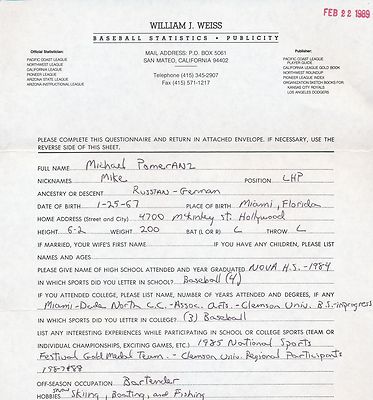 FEB 22 1989
WILLIAM J. WEISS
BASEBALL STATISTICS • PUBLICITY
Official Statistician:
PACIFIC COAST LEAGUE
NORTHWEST LEAGUE
CALIFORNIA LEAGUE
PIONEER LEAGUE
ARIZONA STATE LEAGUE
ARIZONA INSTRUCTIONAL LEAGUE
MAIL ADDRESS: P.O. BOX 5061
SAN MATEO, CALIFORNIA 94402
Telephone (415) 345-2907
Fax (415) 571-1217
Publisher:
PACIFIC COAST LEAGUE
PLAYER GUIDE
CALIFORNIA LEAGUE GOLD BOOK
NORTHWEST ROUNDUP
PIONEER LEAGUE INDEX
ORGANIZATION SKETCH BOOKS FOR
KANSAS CITY ROYALS
LOS ANGELES DODGERS
PLEASE COMPLETE THIS QUESTIONNAIRE AND RETURN IN ATTACHED ENVELOPE. IF NECESSARY, USE THE
REVERSE SIDE OF THIS SHEET.
FULL NAME Michael Pomeranz
NICKNAMES Mike POSITION LHP
ANCESTRY OR DESCENT Russian-German
DATE OF BIRTH 1-25-67 PLACE OF BIRTH Miami, Florida
HOME ADDRESS (Street and City) 4700 McKinley St. Hollywood
HEIGHT 6-2 WEIGHT 200 BAT (L OR R) L THROW L
IF MARRIED, YOUR WIFE'S FIRST NAME IF YOU HAVE ANY CHILDREN, PLEASE LIST
NAMES AND AGES
PLEASE GIVE NAME OF HIGH SCHOOL ATTENDED AND YEAR GRADUATED NOVA H.S. - 1984
IN WHICH SPORTS DID YOU LETTER IN SCHOOL? Baseball (4)
IF YOU ATTENDED COLLEGE, PLEASE LIST NAME, NUMBER OF YEARS ATTENDED AND DEGREES, IF ANY
Miami-Dade North C.C. - Assoc. Arts. - Clemson Univ. B.S.-inprogress
IN WHICH SPORTS DID YOU LETTER IN COLLEGE? (3) Baseball
LIST ANY INTERESTING EXPERIENCES WHILE PARTICIPATING IN SCHOOL OR COLLEGE SPORTS (TEAM OR
INDIVIDUAL CHAMPIONSHIPS, EXCITING GAMES, ETC.) 1985 National Sports
Festival Gold Medal Team. - Clemson Univ. Regional Participants
1987-1988
OFF-SEASON OCCUPATION Bartender
HOBBIES Snow Skiing, Boating, and Fishing